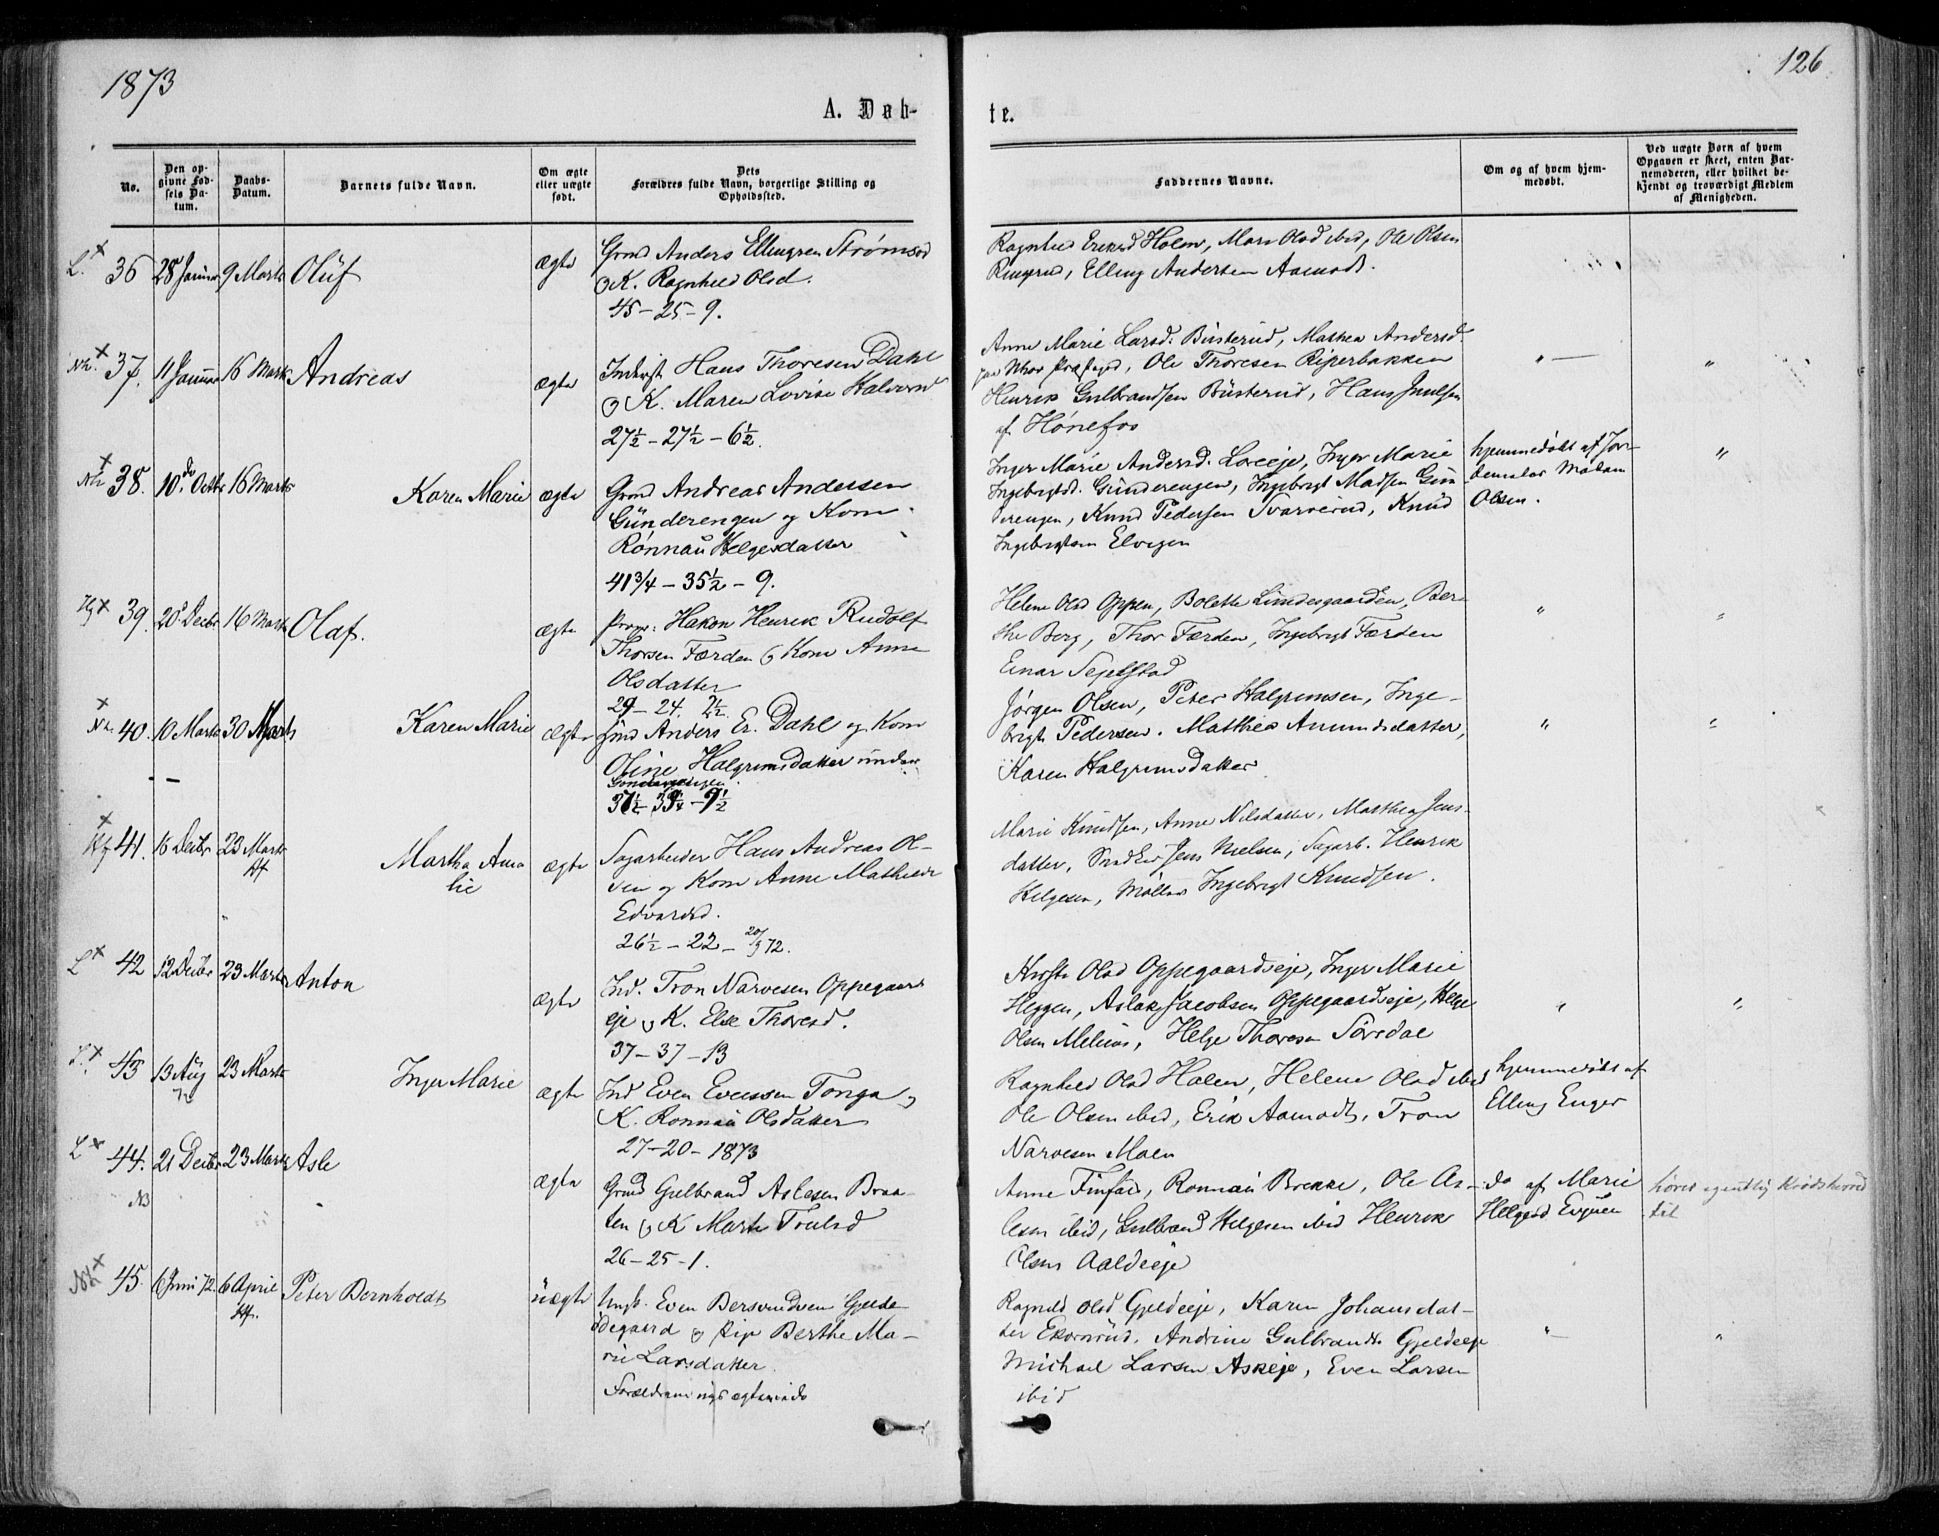 1873
126
A. Døb-
te.
No.
Den op-
givne Fød-
sels Da-
tum.
Daabs-
Datum.
Barnets fulde Navn.
Om ægte
eller uægte
født.
Dets
Forældres fulde Navn, borgerlige Stilling og
Opholdssted.
Faddernes Navne.
Om og af hvem hjem-
medøbt.
Ved uægte Børn af hvem
Opgaven er skeet, enten Bar-
nemoderen, eller hvilket be-
kjendt og troværdigt Medlem
af Menigheden.
L. × 36 28 Januar 9 Marts Olüf ægte
Grmd Anders Ellingsen Strømsod
og K. Ragnhild Olsd.
45 - 25 - 9.
Ragnhild Holm, Mari Olsd ibid, Ole Olsen
Ringerud, Elling Andersen Aamodt.
Nh. × 37. 11 Januar 16 Marts Andreas ægte
Inderst Hans Thoresen Dahl
og K. Maren Lovise Halvorsd
27½ - 27½ - 6½.
Anne Marie Larsd. Büsterud, Mathea Andersd.
Ole Thoresen Riperbakken
Henrik Gulbrandsen Büsterud, Hans
af Hønefos
" —
"
Nh × 38. 10de Octbr 16 Marts Karen Marie ægte
Grmd Andreas Andersen
Günderengen og Kone
Rønnaü Helgesdatter
41¾ - 35½ - 9.
Inger Marie Andersd. Loreeje, Inger Marie
Ingebrigtsd. Günderengen, Ingebrigt Madsen Gün
derengen, Knud Pedersen Svarverud, Knüd
Ingebrigtsen Elvigen
hjemmedøbt af Jor-
demoder Madam
Olsen.
"
Hf × 39. 20 Decbr 16 Marts Olaf. ægte
Propr: Hakon Henrik Rudolf
Thorsen Færden og Kone Anne
Olsdatter
29 - 24. 7½.
Helene Olsd Oppen, Bolette Lundesgaarden, Ber-
the Berg, Thor Færden, Ingebrigt Færden
Einar Segelstad
"
"
Nh. × 40. 10 Marts 30 Marts Karen Marie ægte
Anders Er. Dahl og Kone
Oline Halgrimsdatter under
Gunderengen.
37½ - 39¼ - 9½
Jørgen Olsen, Peter Halgrimsen, Inge-
brigt Pedersen. Matthea Amundsdatter,
Karen Halgrimsdatter
"
"
Hf × 41. 16 Decbr 23 Marts Hf Martha Ama
lie ægte
Sagarbeider Hans Andreas Ol-
sen og Kone Anne Mathilde
Edvardsd.
26½ - 22 - 20/9 72.
Marie Knudsen, Anne Nilsdatter, Matthea Jens-
datter, Snedker Jens Nielsen, Sagarb. Henrik
Helgesen, Møller Ingebrigt Knudsen.
L × 42 12 Decbr 23 Marts Anton ægte
Ind. Tron Narvesen Oppegaards
eje og K. Else Thoresd.
37 - 37 - 13
Kirsti Olsd Oppegaardseje, Inger Marie
Heggen, Aslak Jacobsen Oppegaardseje, Helge
Olsen Melüos, Helge Thoresen Sørsdal
"
"
L. × 43 13 Aug 72 23 Marts Inger Marie ægte
Ind Even Evensen Tonga og
K. Ronnau Olsdatter
27 - 20 - 1873
Ragnhild Olsd Holen, Helene Olsd ibid
Ole Olsen ibid, Erik Aamodt, Tron
Narvesen Moen
hjemmedøbt af
Elling Enger
L × 44. 21 Decbr 23 Marts Asle ægte
NB
Grmd Gulbrand Aslesen Braa-
ten og K Marte Trulsd
26 - 25 - 1.
Anne Finsæd, Ronnau Brekke, Ole As-
lesen ibid, Gulbrand Helgesen ibid Henrik
Olsen Aaldeeje
do af Marie
Helgesd Evjuen
hører egentlig Krødsherred
til
Nh × 45. 6 Juni 72. 6 April Hf. Peter Bernhardt uægte
Ungk. Even Bersvendsen Gjelde
ødegaard og Pige Berthe Ma-
rie Larsdatter.
Forældrene nys ægteviede
Ragnild Olsd Gjeldeeje, Karen Johansdat-
ter Ekornrüd, Andrine Gulbrandsd. Gjeldeeje
Michael Larsen Askeje, Even Larsen
ibid
" —
"